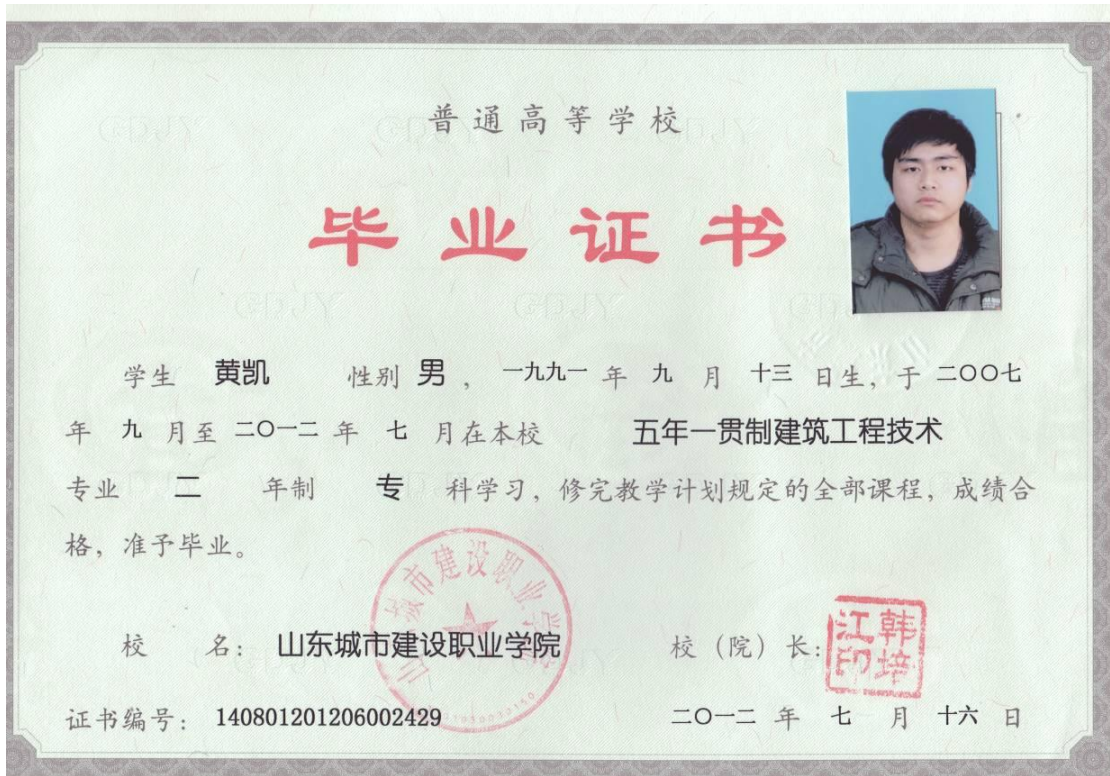 普通高等学校
毕业证书
学生 黄凯 性别 男 , 一九九一 年 九 月 十三 日生, 于 二〇〇七
年 九 月至 二〇一二 年 七 月在本校 五年一贯制建筑工程技术
专业 二 年制 专 科学习, 修完教学计划规定的全部课程, 成绩合
格, 准予毕业。
山东城市建设职业学院
校 名: 山东城市建设职业学院 校(院)长:
韩培江印
证书编号: 140801201206002429 二〇一二 年 七 月 十六 日
GDJY